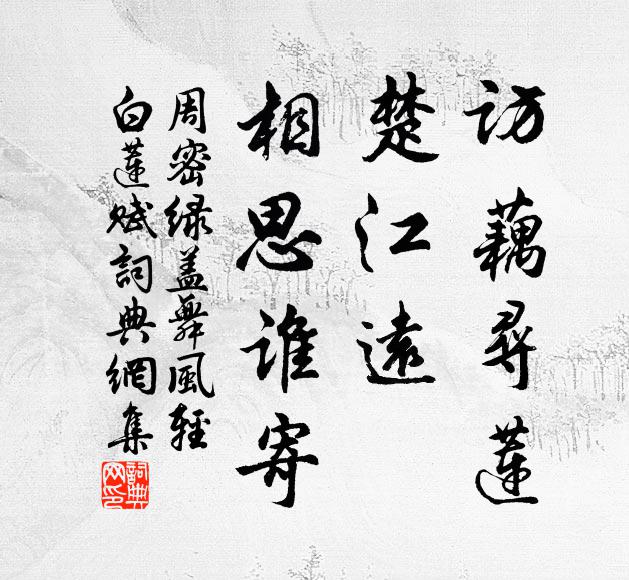 访藕寻莲
楚江遠
相思谁寄
周密绿盖舞风轻
白莲赋词典網集
词典网印